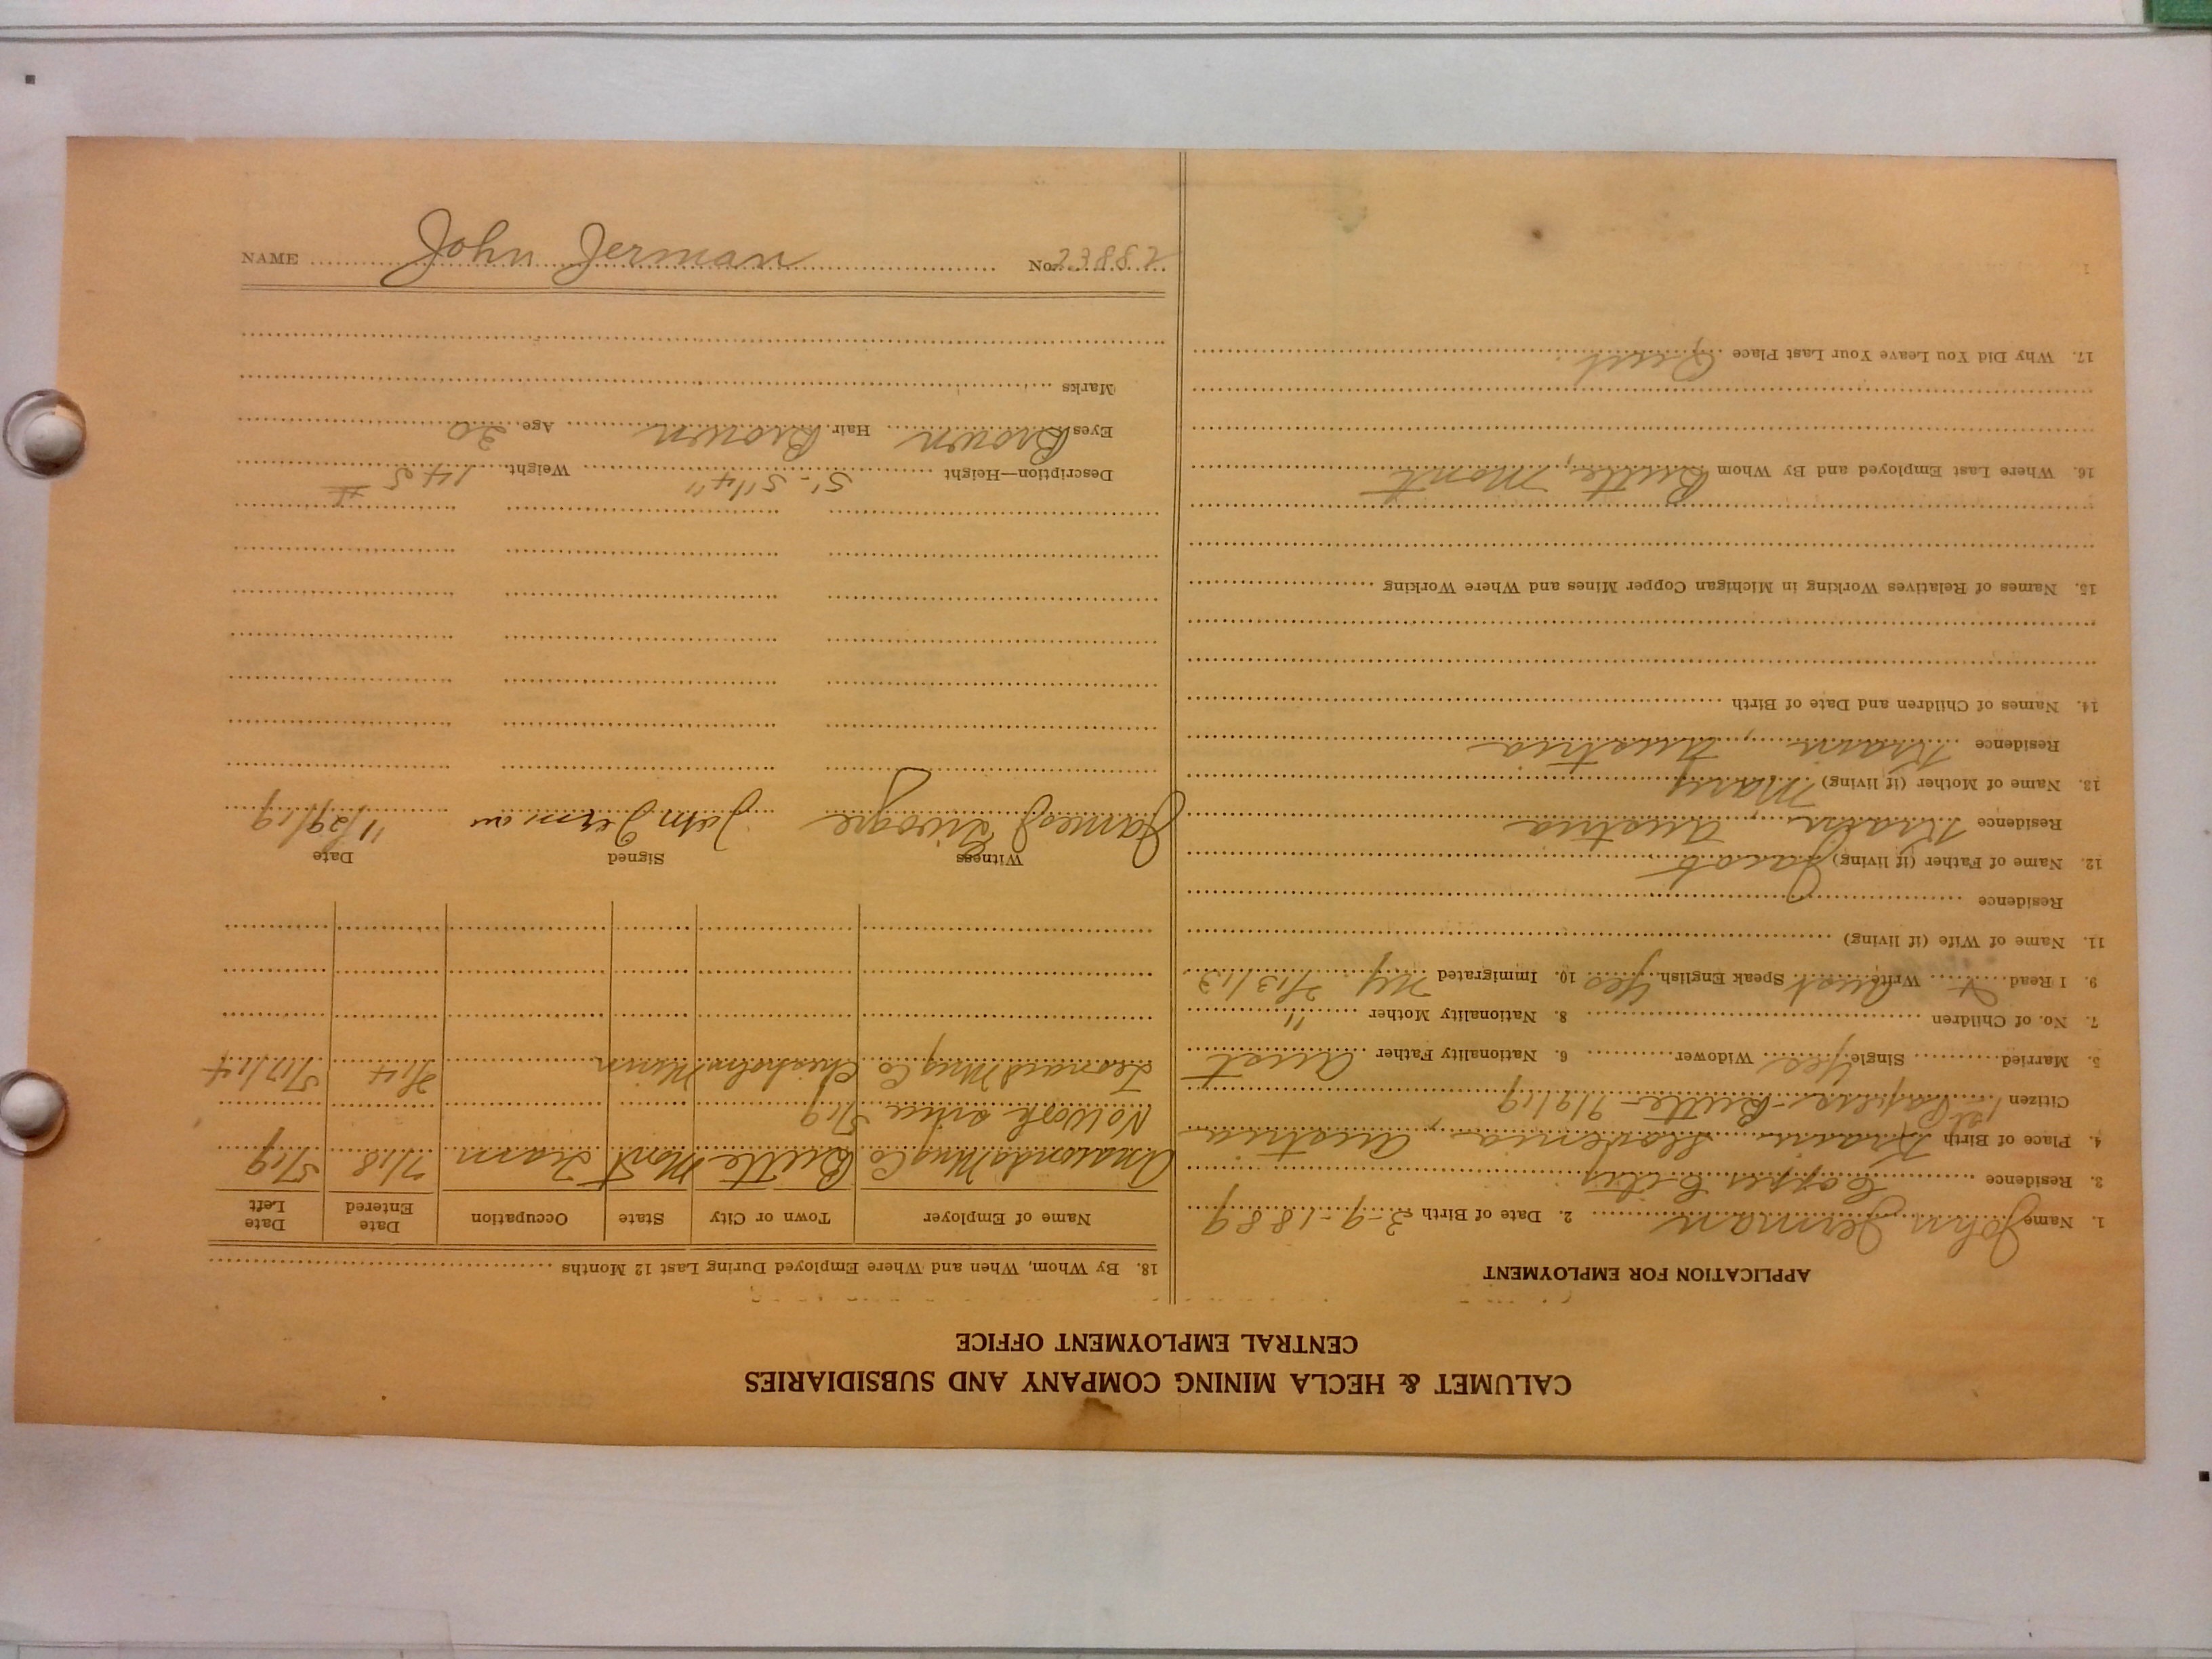 CALUMET & HECLA MINING COMPANY AND SUBSIDIARIES
CENTRAL EMPLOYMENT OFFICE
APPLICATION FOR EMPLOYMENT
1. Name John Jerman 2. Date of Birth 3-9-1889
3. Residence Copper City
4. Place of Birth Krain, Slovenia, Austria
Citizen 1st Papers - Butte - 9/9/19
5. Married Single Yes Widower 6. Nationality Father Aust
7. No. of Children 8. Nationality Mother "
9. I Read Write Aust Speak English Yes 10. Immigrated NY 2/13/13
11. Name of Wife (if living)
Residence
12. Name of Father (if living) Jacob
Residence Krain, Austria
13. Name of Mother (if living) Mary
Residence Krain, Austria
14. Names of Children and Date of Birth
15. Names of Relatives Working in Michigan Copper Mines and Where Working
16. Where Last Employed and By Whom Butte, Mont
17. Why Did You Leave Your Last Place Quit
18. By Whom, When and Where Employed During Last 12 Months
Name of Employer Town or City State Occupation Date Entered Date Left
Anaconda Mng Co Butte Mont Tram 7/18 5/19
No Work since 5/19
Leonard Mng Co Chisholm Minn 2/14 5/17/14
Witness Signed Date
James John Jerman 11/29/19
Description—Height 5'-5 1/4" Weight 145 #
Eyes Brown Hair Brown Age 30
Marks
NAME John Jerman No. 23882